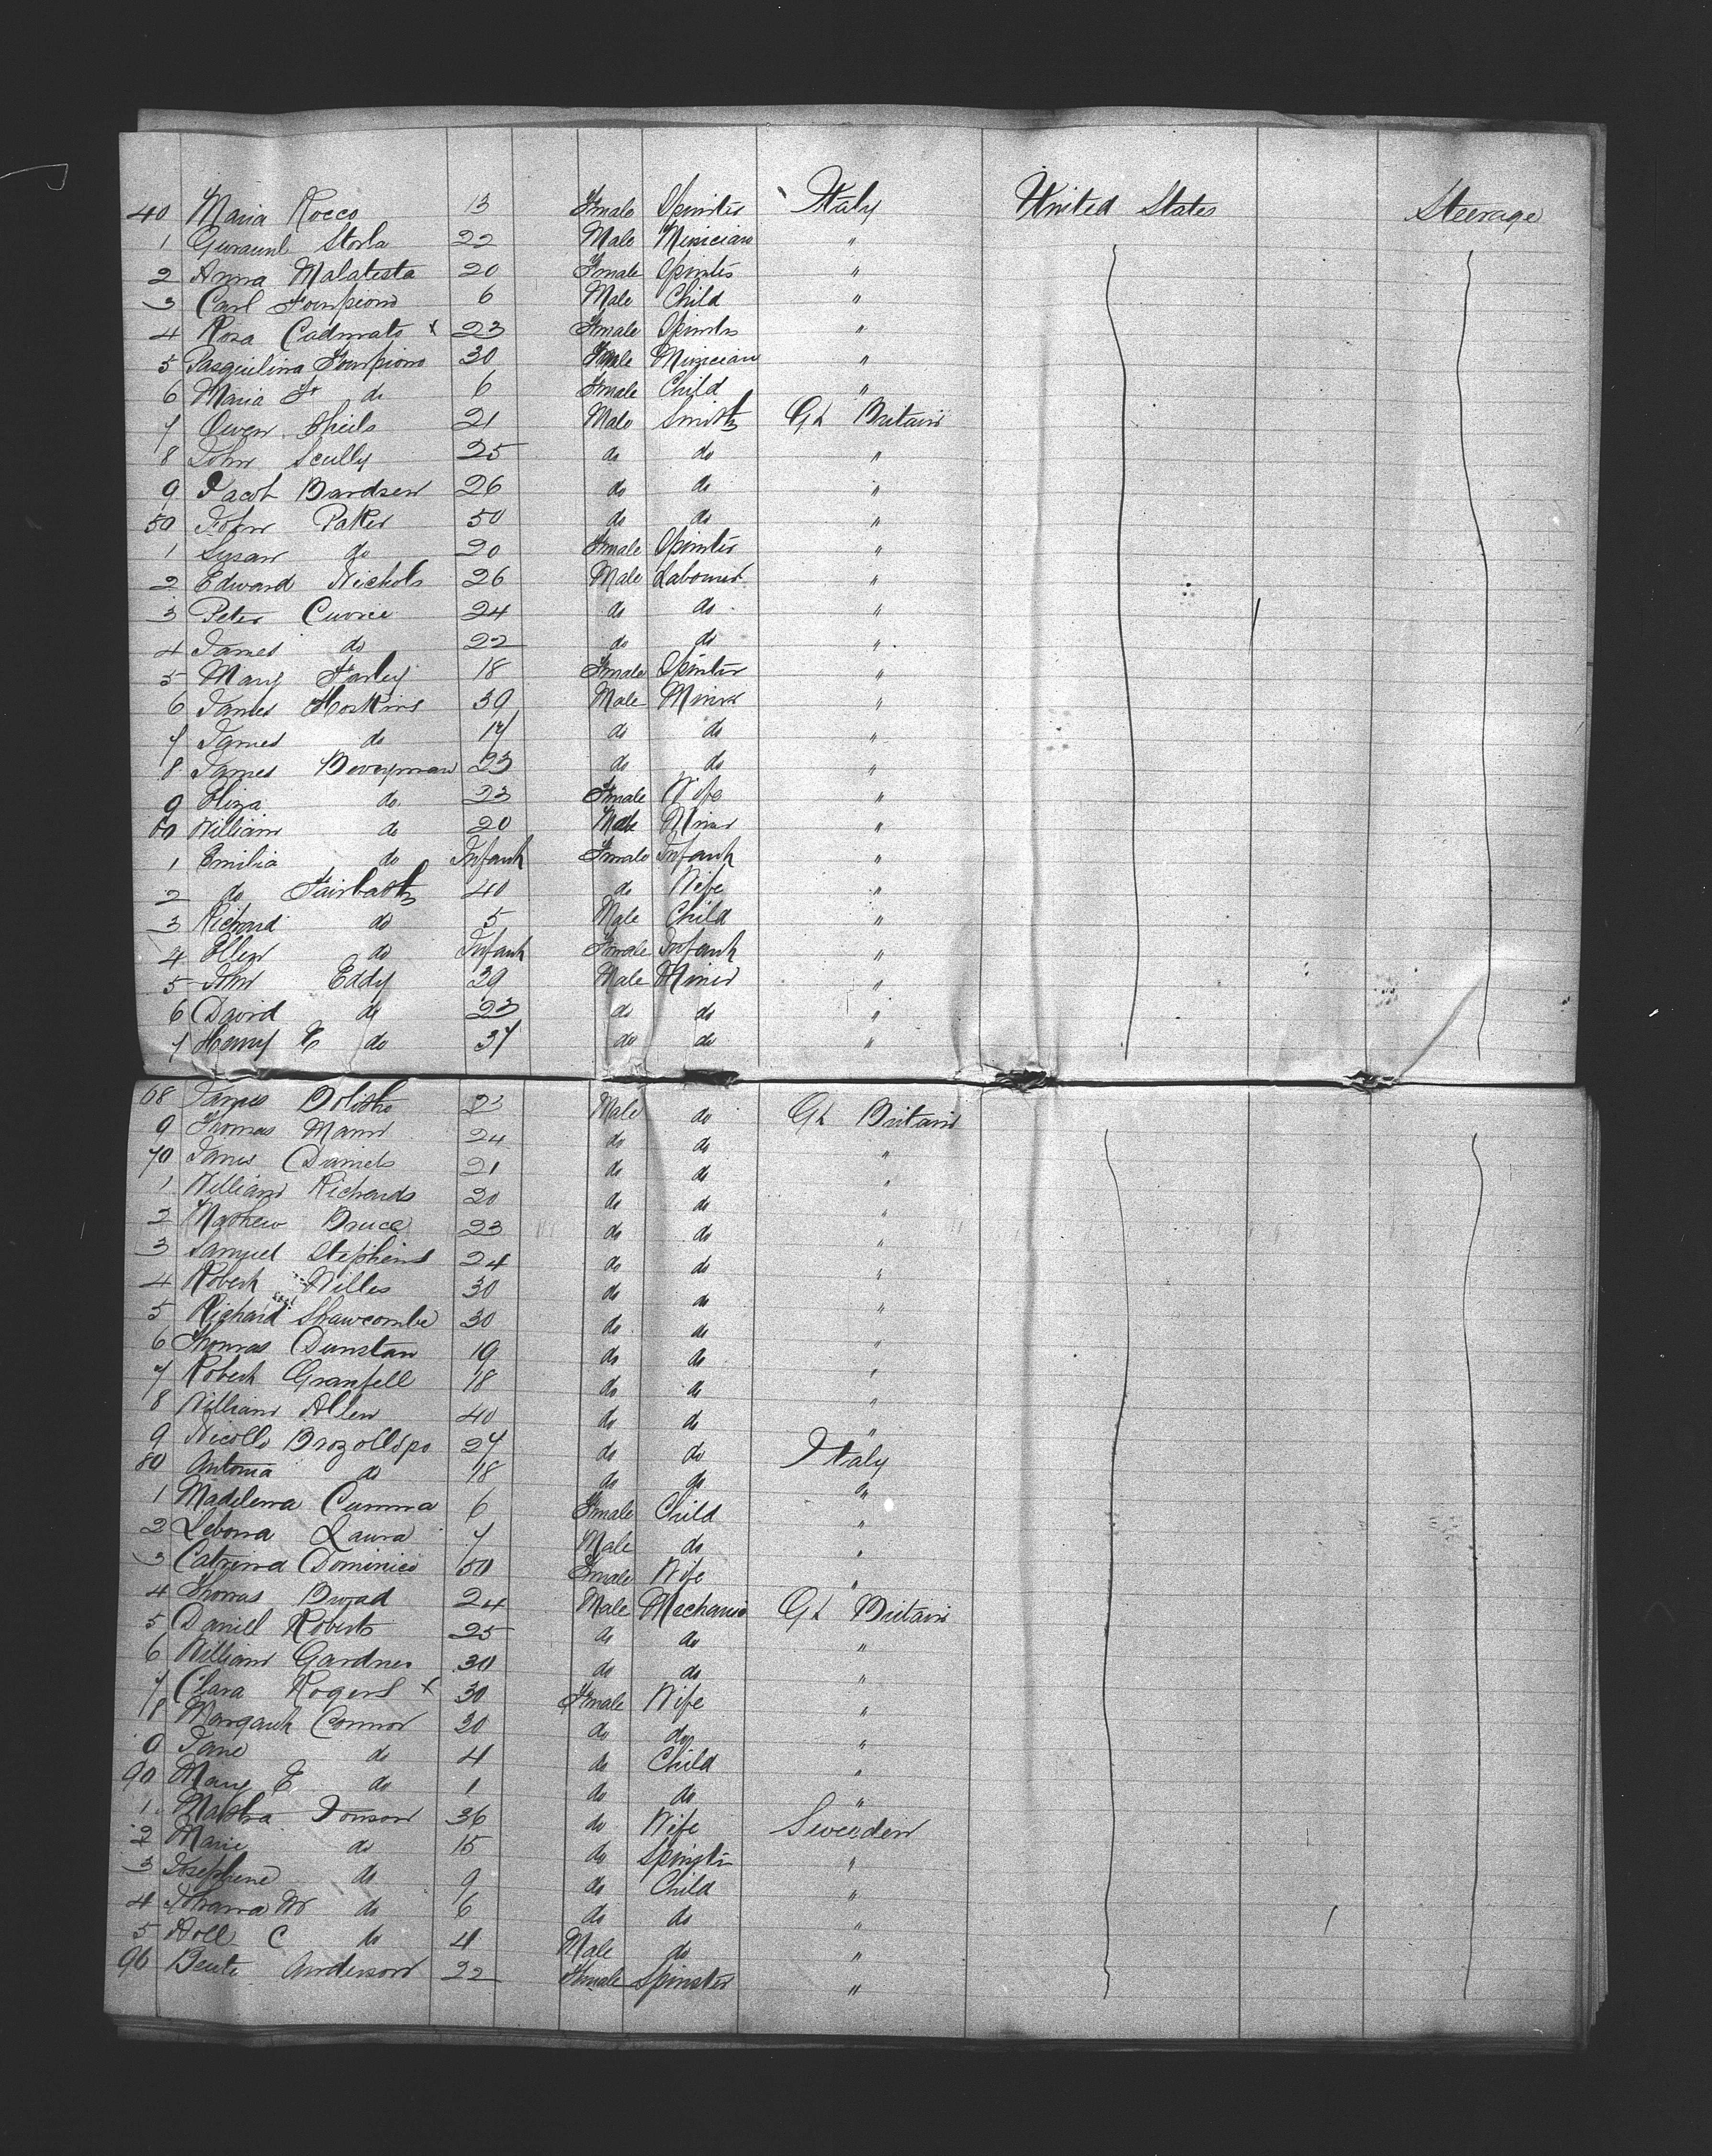 40 Maria Rocco 13 Female Spinster Italy United States Steerage
1 Storla 22 Male Musician "
2 Anna Malatesta 20 Female Spinster "
3 Carl 6 Male Child "
4 Rosa x 23 Female Spinster "
5 Pasquilina 30 Male Musician "
6 Maria do 6 Female Child "
7 Owen Shiels 21 Male Smith Gt Britain
8 John Scully 25 do do "
9 Jacob Bardsen 26 do do "
50 John Paker 50 do do "
1 Susan do 20 Female Spinster "
2 Edward Nichols 26 Male Labourer "
3 Peter Currie 24 do do "
4 James do 22 do do "
5 Mary Farley 18 Female Spinster "
6 James Hoskins 39 Male Miner "
7 James do 17 do do "
8 James 23 do do "
9 Eliza do 23 Female Wife "
60 William do 20 Male Miner "
1 Emilia do Infant Female Infant "
2 do 40 do Wife "
3 Richard do 5 Male Child "
4 Ellen do Infant Female Infant "
5 John Eddy 29 Male Miner "
6 David do 23 do do "
7 Henry do 37 do do "
68 James 23 Male do Gt Britain
9 Thomas Mann 24 do do "
70 James Daniels 21 do do "
1 William Richards 20 do do "
2 Mathew Bruce 23 do do "
3 Samuel Stephens 24 do do "
4 Robert Willes 30 do do "
5 Richard Shawcombe 30 do do "
6 Thomas Dunstan 19 do do "
7 Robert Granfell 18 do do "
8 William Allen 40 do do "
9 Nicollo 27 do do Italy
80 Antonia do 18 do do "
1 Madelena Cumma 6 Female Child "
2 Lebona Laura 7 Male do "
3 Catrina Dominici 60 Female Wife "
4 Thomas 24 Male Mechanic Gt Britain
5 Daniell Roberts 25 do do "
6 William Gardner 30 do do "
7 Clara Rogers x 30 Female Wife "
8 Margaret Connor 30 do do "
9 Jane do 4 do Child "
90 Mary E do 1 do do "
1 Jonson 36 do Wife Sweeden
2 Marie do 15 do Spinster "
3 Josephine do 9 do Child "
4 Johanna do 6 do do "
5 C do 4 Male do "
96 Anderson 22 Female Spinster "